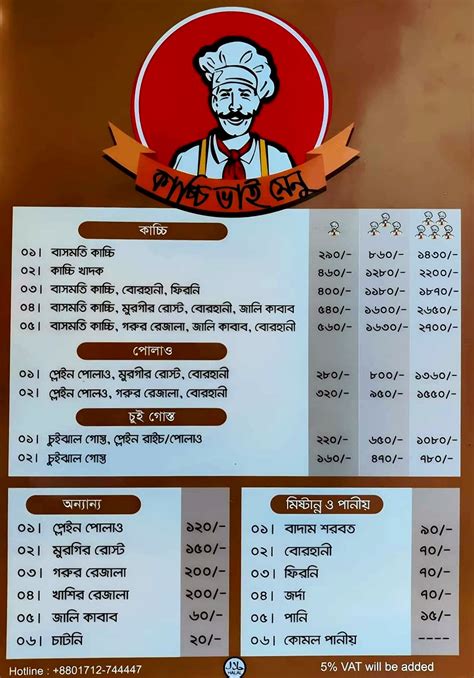 কাচ্চি ভাই মেনু
কাচ্চি
০১। বাসমতি কাচ্চি ২৯০/- ৮৬০/- ১৪৩০/-
০২। কাচ্চি খাদক ৪৬০/- ১২৮০/- ২২০০/-
০৩। বাসমতি কাচ্চি, বোরহানী, ফিরনি ৪০০/- ১১৮০/- ১৮৭০/-
০৪। বাসমতি কাচ্চি, মুরগির রোস্ট, বোরহানী, জালি কাবাব ৫৪০/- ১৬০০/- ২৬৫০/-
০৫। বাসমতি কাচ্চি, গরুর রেজালা, জালি কাবাব, বোরহানী ৫৬০/- ১৬৩০/- ২৭০০/-
পোলাও
০১। প্লেইন পোলাও, মুরগির রোস্ট, বোরহানী ২৮০/- ৮০০/- ১৩৬০/-
০২। প্লেইন পোলও, গরুর রেজালা, বোরহানী ৩২০/- ৯৫০/- ১৫৫০/-
চুই গোস্ত
০১। চুইঝাল গোস্ত, প্লেইন রাইচ/পোলাও ২২০/- ৬৫০/- ১০৮০/-
০২। চুইঝাল গোস্ত ১৬০/- ৪৭০/- ৭৮০/-
অন্যান্য
০১। প্লেইন পোলাও ১২০/-
০২। মুরগির রোস্ট ১৫০/-
০৩। গরুর রেজালা ২০০/-
০৪। খাশির রেজালা ২০০/-
০৫। জালি কাবাব ৬০/-
০৬। চাটনি ২০/-
মিষ্টান্ন ও পানীয়
০১। বাদাম শরবত ৯০/-
০২। বোরহানী ৭০/-
০৩। ফিরনি ৭০/-
০৪। জর্দা ৭০/-
০৫। পানি ১৫/-
০৬। কোমল পানীয় ----
Hotline : +8801712-744447
حلال
HALAL
5% VAT will be added